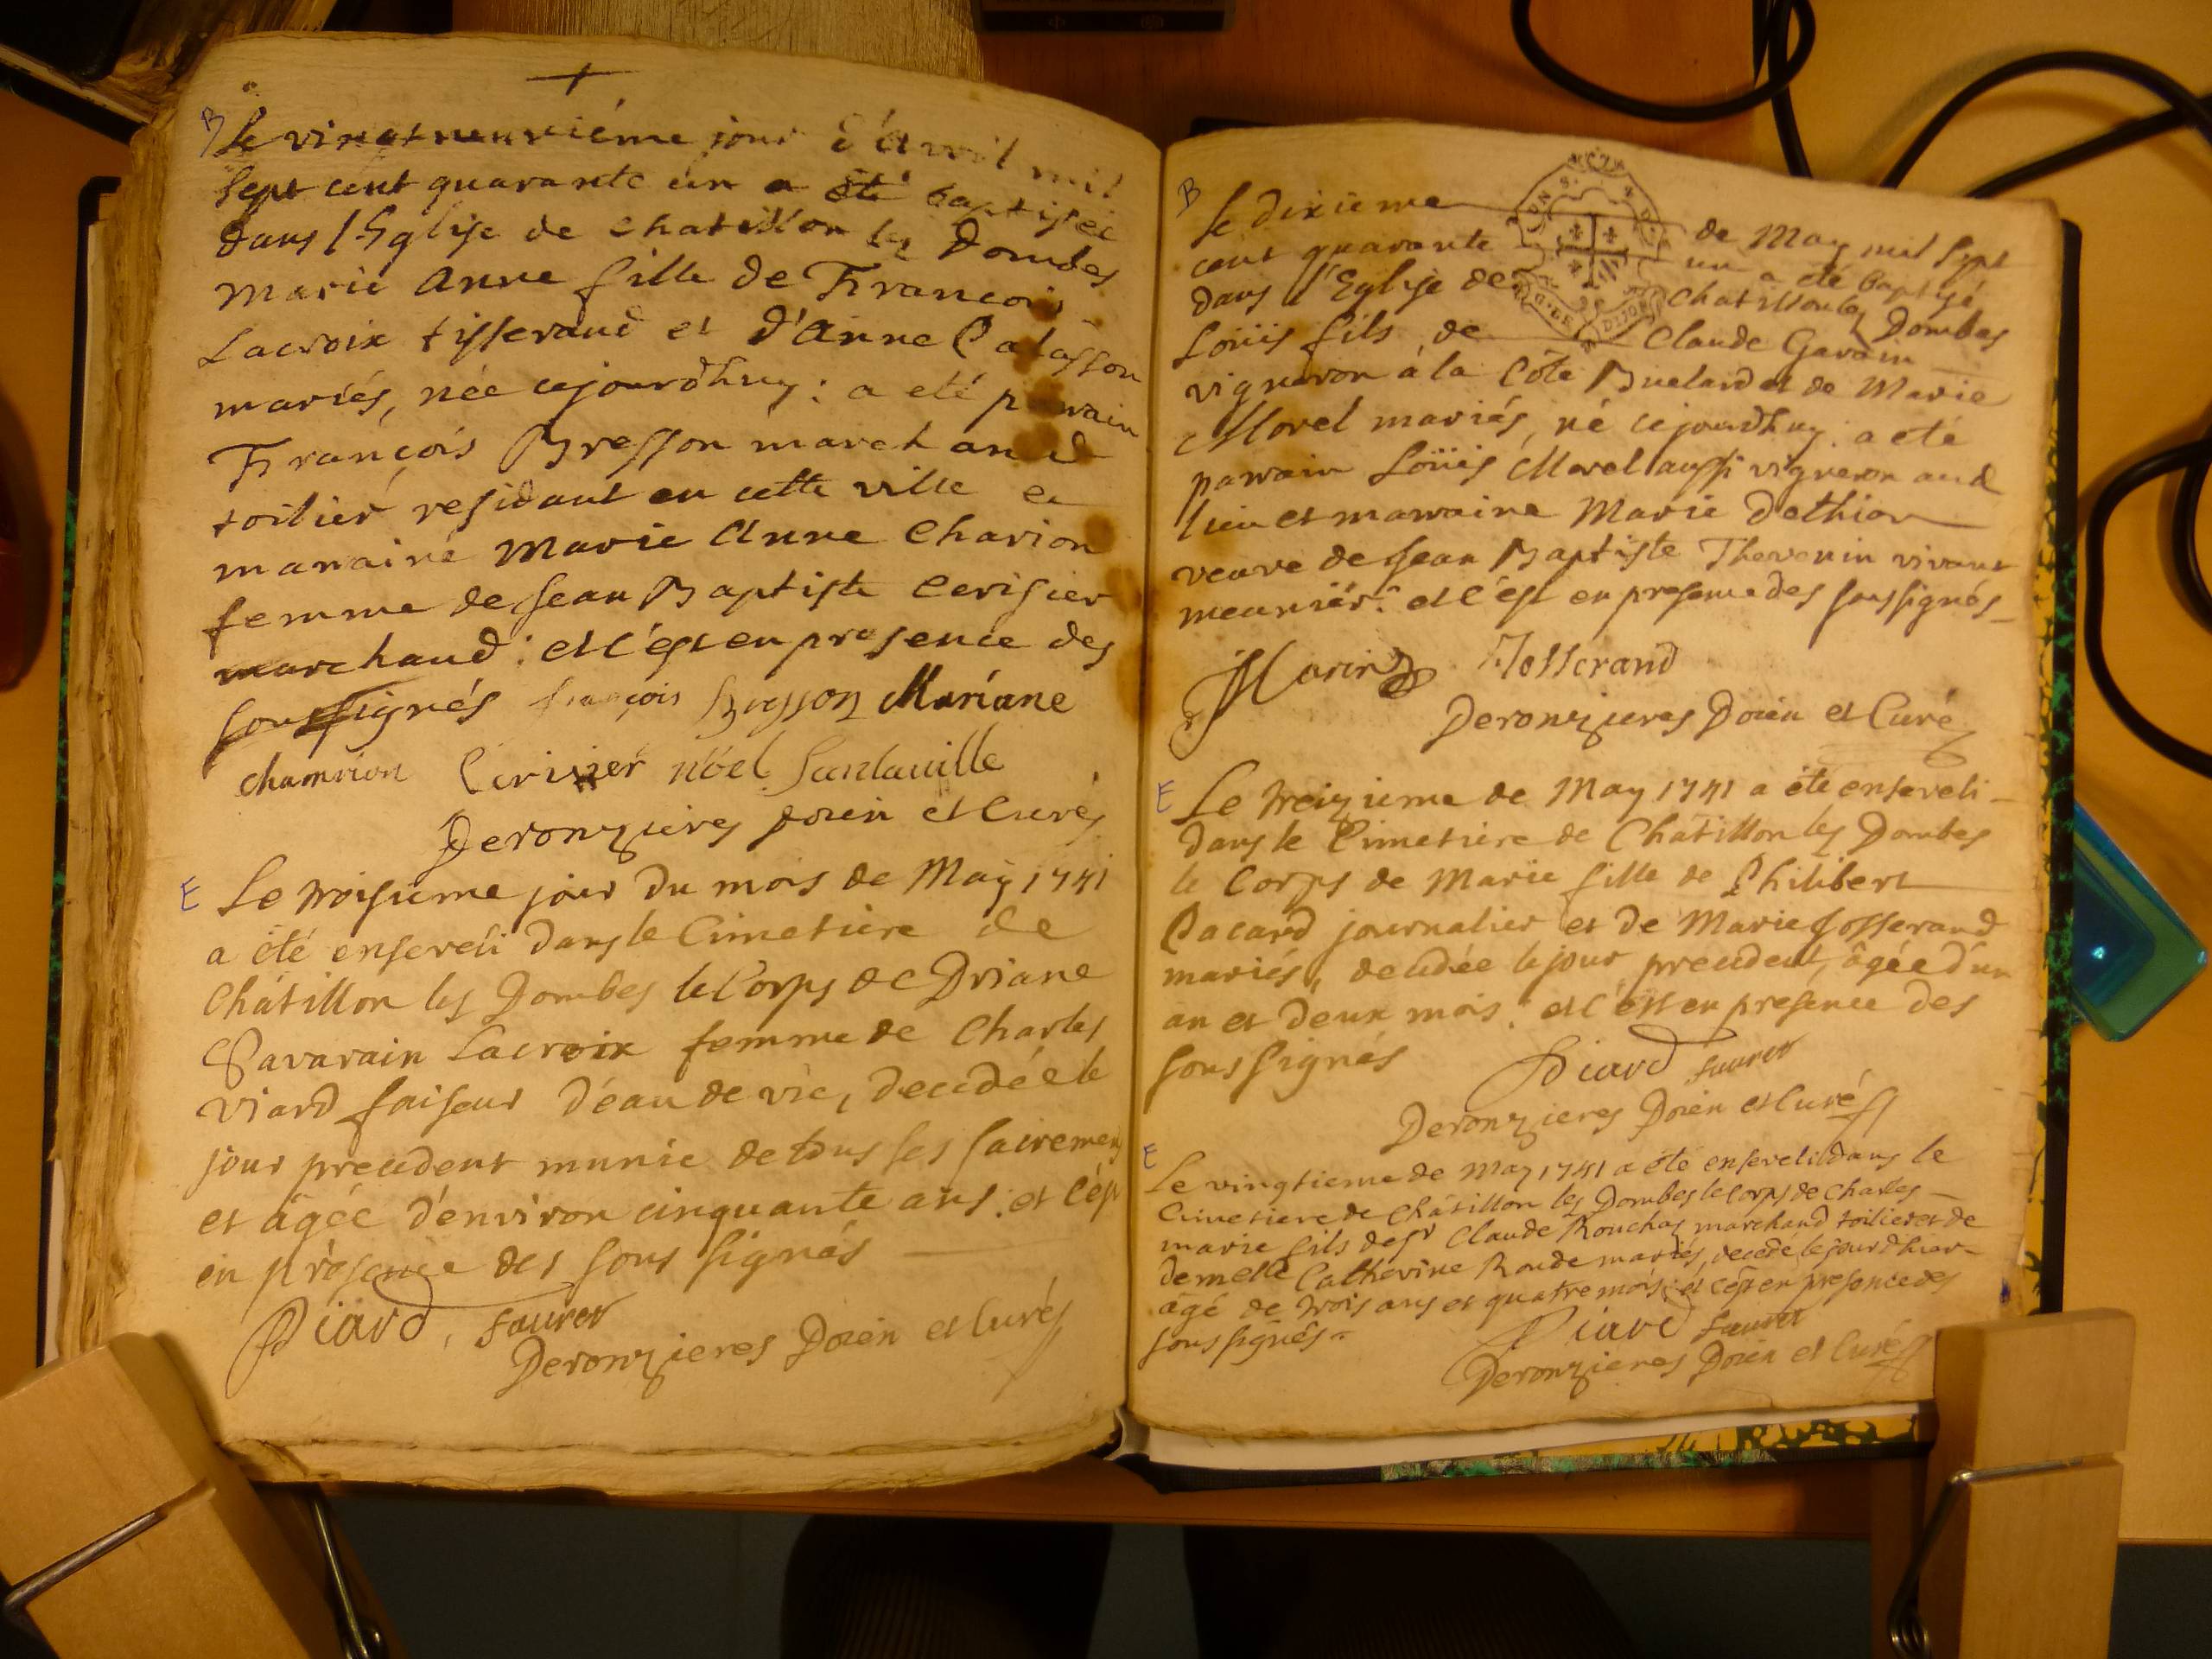 B
Le vingtneuvième jour d'Avril mil
sept cent quarante un a été baptisée
dans l'Eglise de Chatillon les Dombes
Marie Anne fille de François
Lacroix tisserand et d'Anne
mariés, née cejourdhuy : a eté parrain
François Bresson marchand
toilier residant en cette ville et
marraine Marie Anne Charion
femme de Jean Baptiste Cerisier
marchand : et c'est en presence des
soussignés françois Bresson Mariane
chamrion Cerisier nöel
Deronzieres Doïen et Curé
E
Le troisieme jour du mois de May 1741
a été enseveli dans le Cimetiere de
Châtillon les Dombes le Corps de Driane
Savarain Lacroix femme de Charles
Viard faiseur d'eau de vie, decedée le
jour precedent munie de tous ses sacremens
et âgée d'environ cinquante ans : et c'est
en présence des sous signés
Piard, Faurer
Deronzieres Doïen et Curé
B
Le dixieme de May mil sept
cent quarante un a été baptisé
dans l'Eglise de Chatillon les Dombes
Loüis fils de Claude Gardin
vigneron à la Côte Buelard et de Marie
Morel mariés, né cejourdhuy : a eté
parrain Loüis Morel aussi vigneron aud
lieu et marraine Marie Dethion
veuve de Jean Baptiste Thevenin vivant
meunièr : et c'est en presence des soussignés
Morin Josserand
Deronzieres Doïen et Curé
E
Le treizieme de May 1741 a été enseveli
dans le Cimetiere de Châtillon les Dombes
le Corps de Marie fille de Philibert
Pacard journalier et de Marie Josserand
mariés, decedée le jour precedent, âgée d'un
an et deux mois : et c'est en presence des
sous signés Piard Faurer
Deronzieres Doïen et Curé
E
Le vingtieme de May 1741 a été enseveli dans le
Cimetiere de Châtillon les Dombes le Corps de Charles
marie fils de sr Claude Rouchas marchand toilier et de
demelle Catherine Ronde mariés, decedé le jour d'hier
âgé de trois ans et quatre mois : et c'est en presence des
sous signés. Piard Faurer
Deronzieres Doïen et Curé